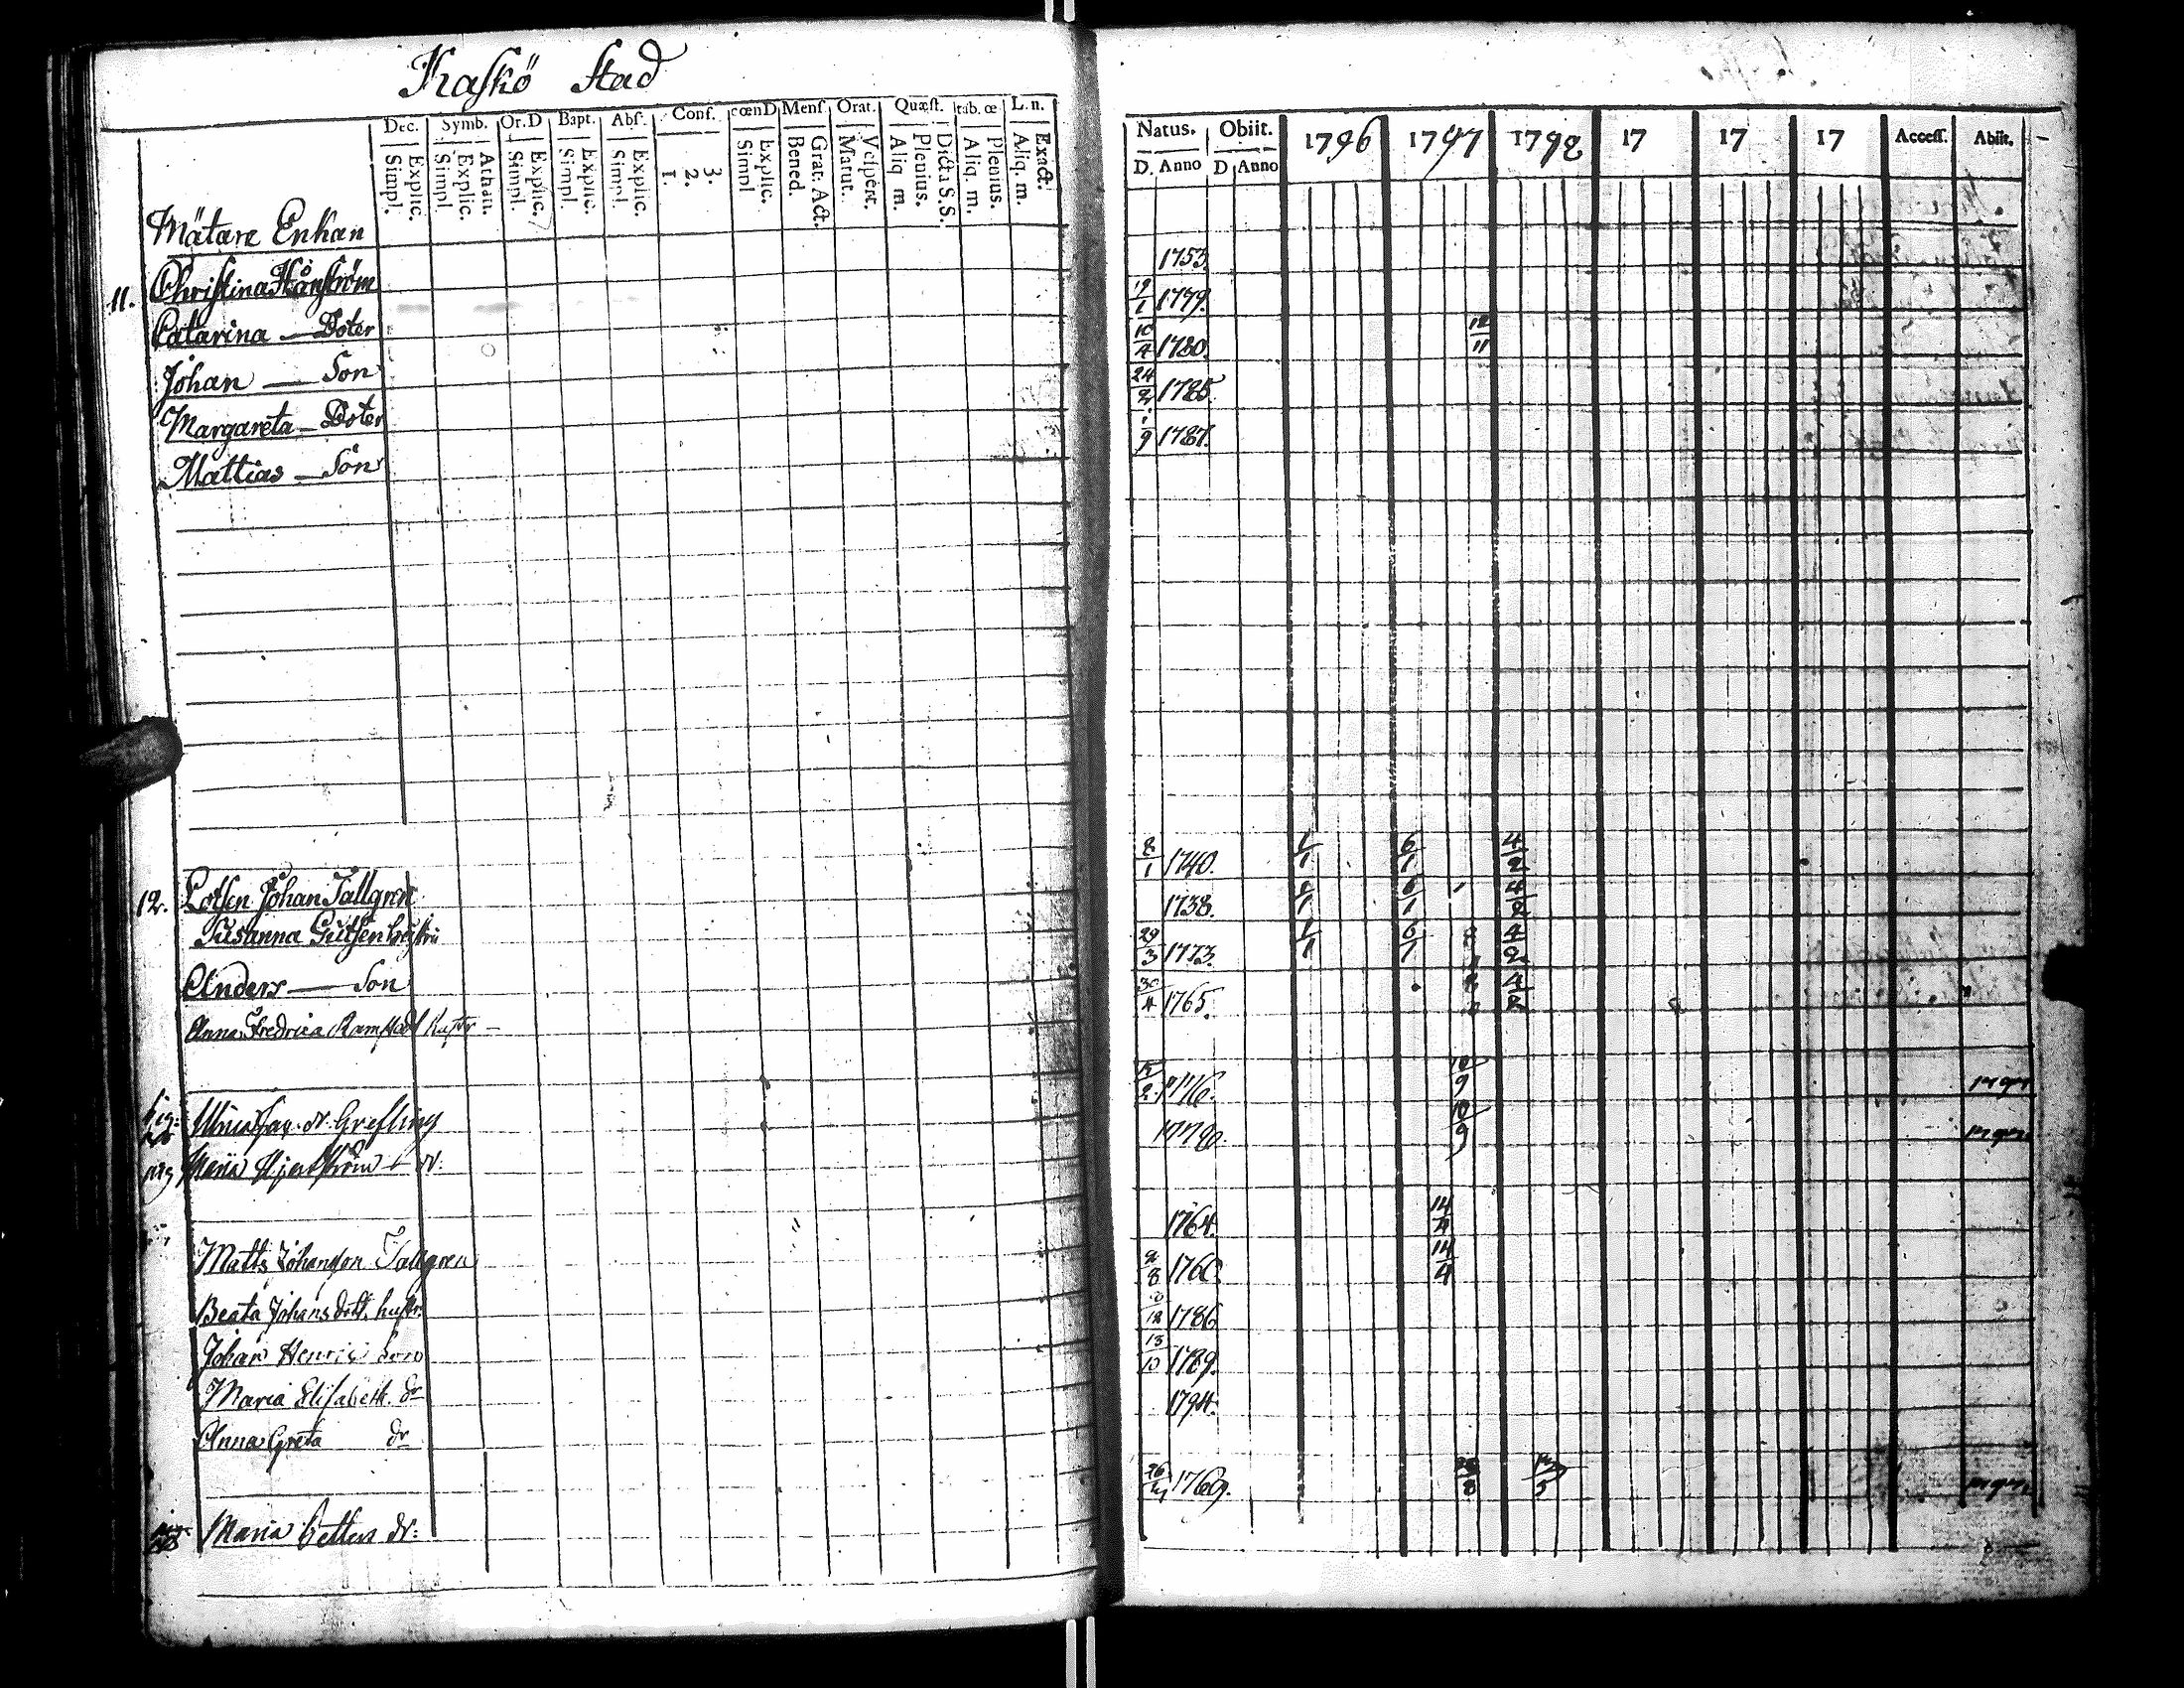 Kaskö Stad
Dec. Symb. Or.D Bapt. Abs. Conf. cœnD Mens. Orat. Quæst. tab. œ L. n.
Simpl. Explic. Simpl. Explic. Athan. Simpl. Explic. Simpl. Explic. Simpl. Explic. 1. 2. 3. Simpl Explic. Bened. Grat. Act. Matut. Vespert. Aliq m. Plenius. Dicta S.S. Aliq. m. Plenius. Aliq. m. Exact.
Mätare Enkan
11. Christina Hånström
Catarina — Doter
Johan — Son
Margareta — Doter
Mattias — Son
12. Lotsen Johan Tallgren
Susanna hustru
Anders — Son
Anna Fredrica Ramstedt hustr
Grefling
pig Maria dr.
Matts Johansson Tallgren
Beata Johans dott. hustr.
Johan Henric son
Maria Elisabeth. dr
Anna Greta dr
Maria dr:
Natus. Obiit. 1796 1797 1798 17 17 17 Access. Abiit.
D. Anno D Anno
1753.
19/1 1779.
10/4 1780. 12/11
24/2 1785
/9 1787.
8/1 1740. 1/1 6/1 4/2
1738. 1/1 6/1 4/2
29/3 1773. 1/1 6/1 4/2
30/4 1765. 4/2
/2 1776. 10/9
1780. 10/9
1764. 14/4
/8 1760. 14/4
/12 1786
13/10 1789.
1794.
26/ 1769.